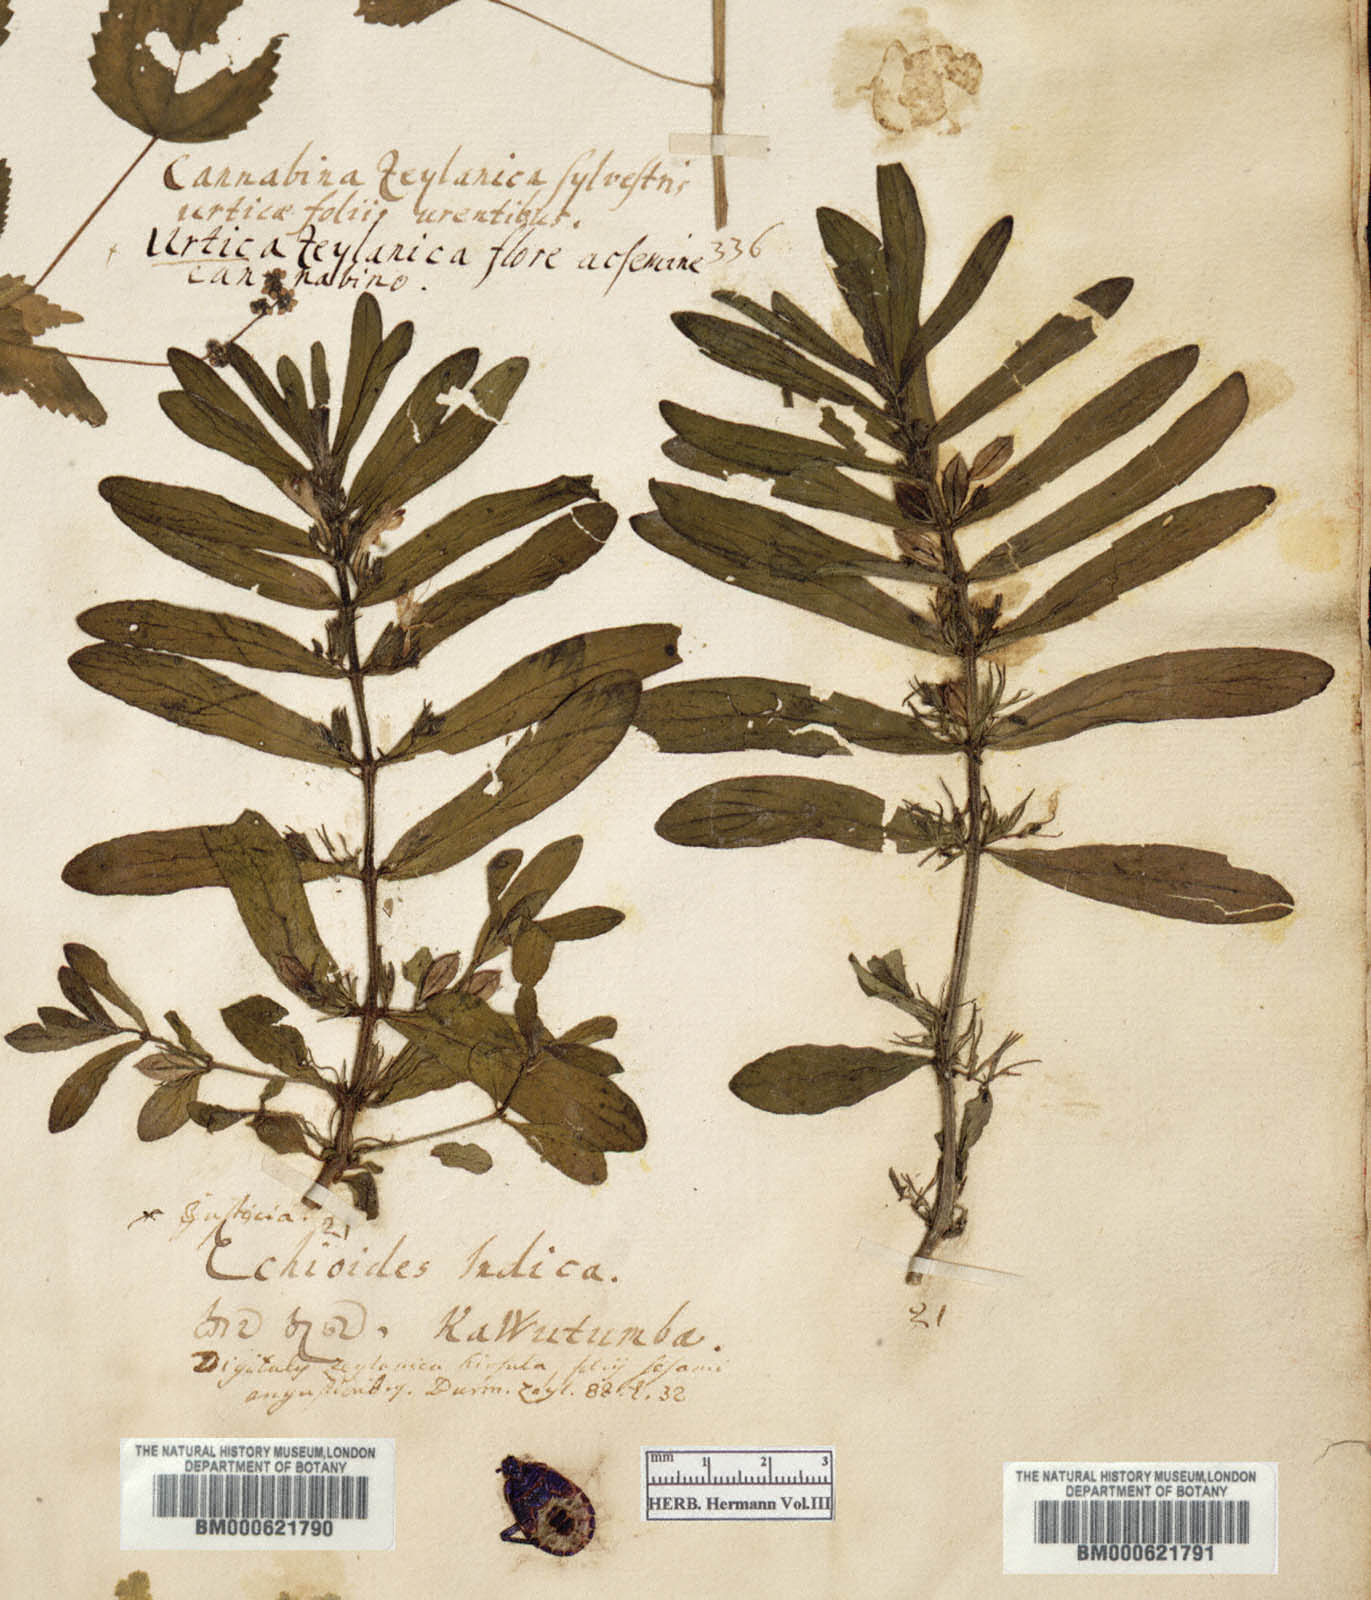 Cannabina Zeylanica sylvestris
urticæ foliis urentibus.
Urtica Zeylanica flore ac semine 336
cannabino.
* Justicia. 21
Echioides Indica.
KaWutumba.
Digitalis zeylanica hirsuta, foliis sesami
angustioribus. Burm. Zeyl. 88. t. 32
21
THE NATURAL HISTORY MUSEUM,LONDON
DEPARTMENT OF BOTANY
BM000621790
mm 1 2 3
HERB. Hermann Vol.III
THE NATURAL HISTORY MUSEUM,LONDON
DEPARTMENT OF BOTANY
BM000621791